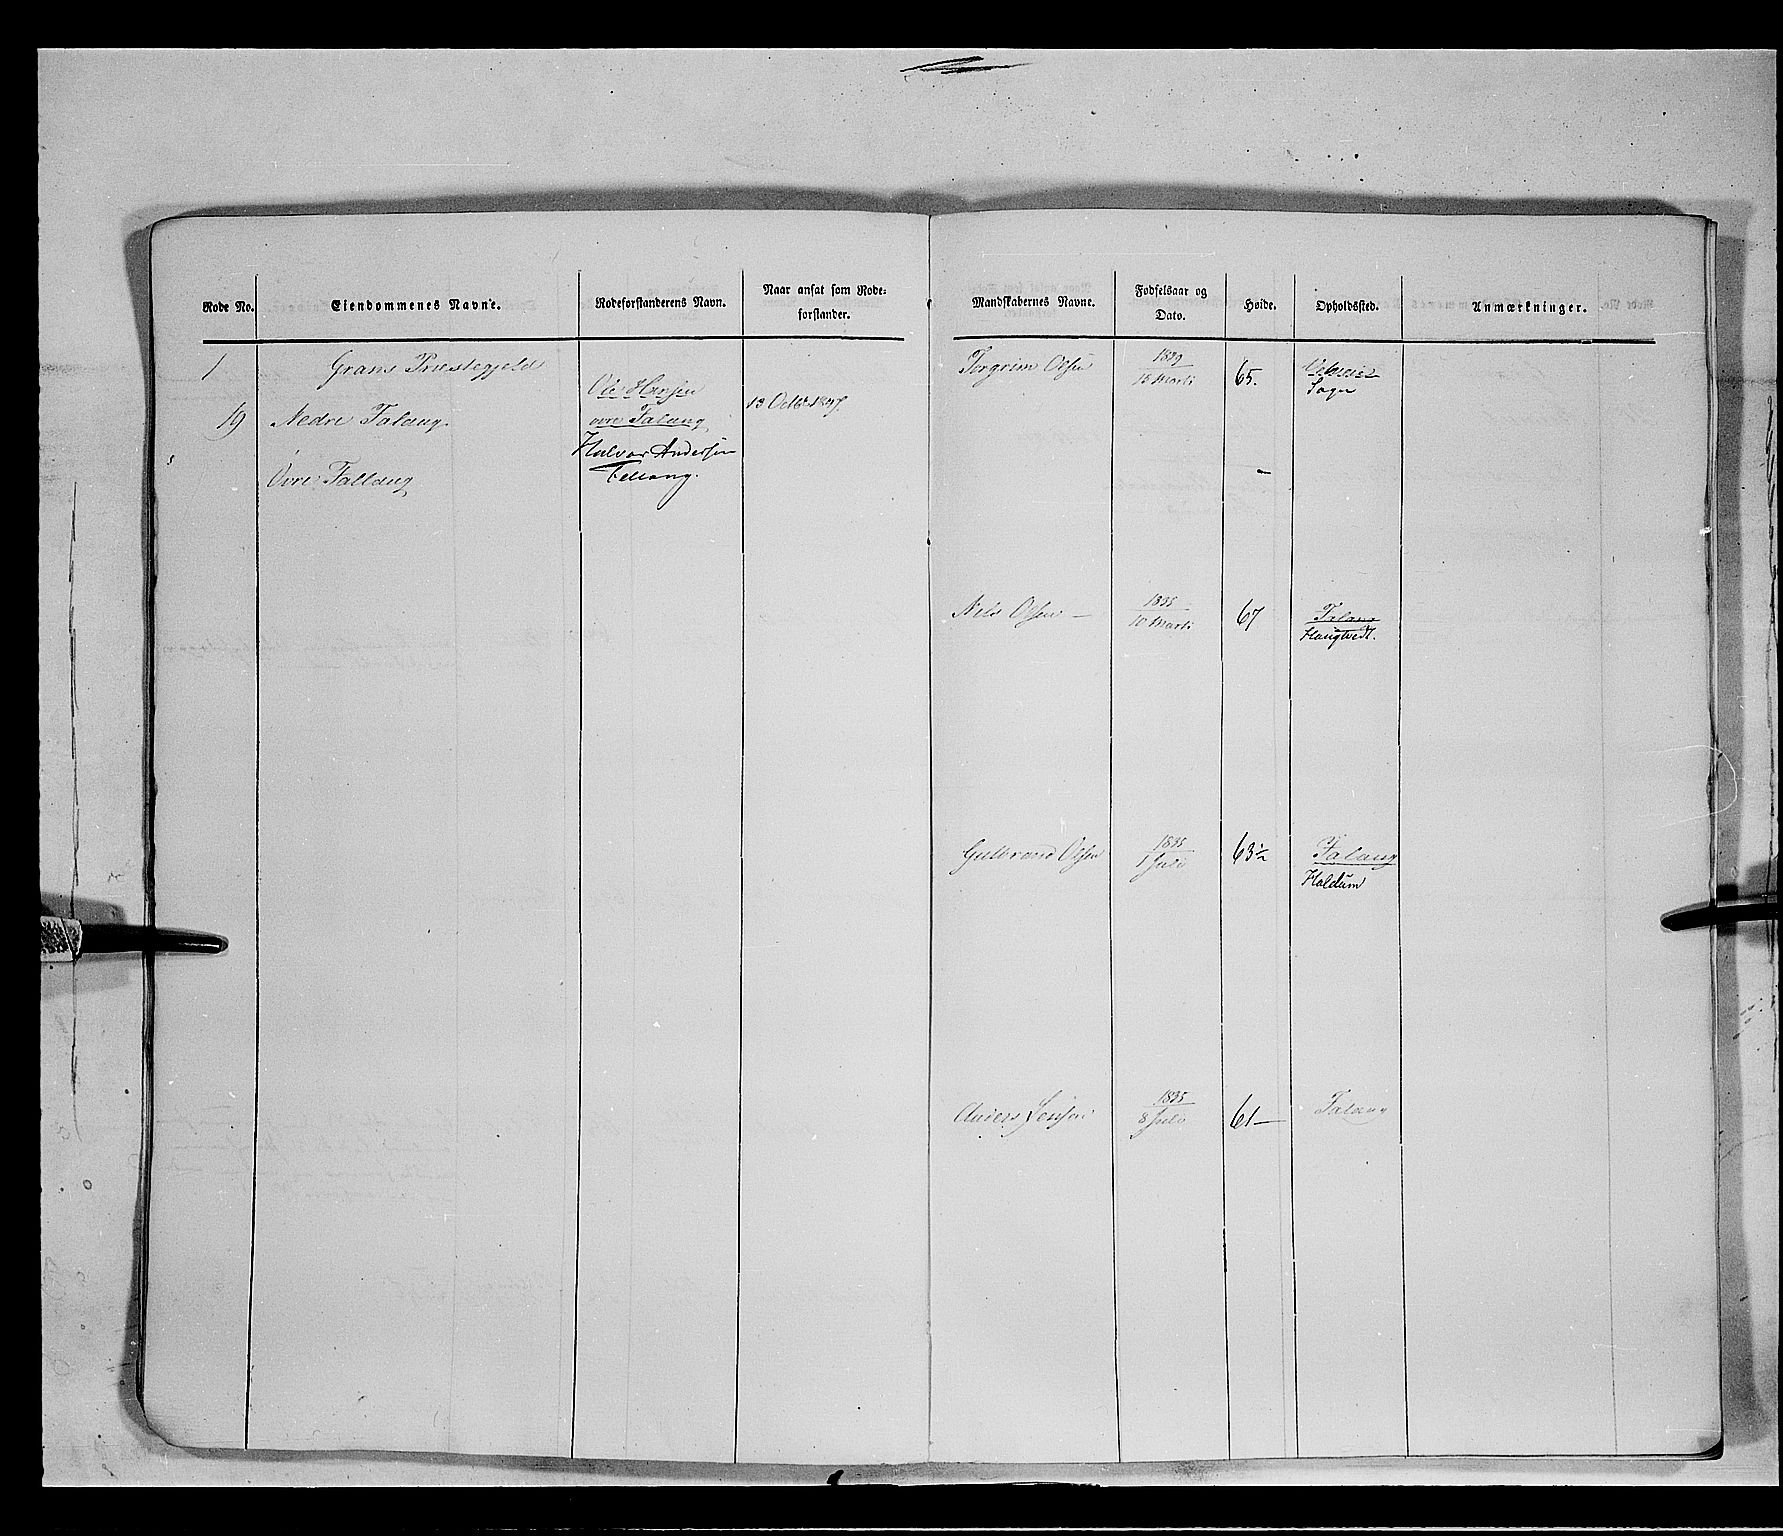 Rode No.
Eiendommenes Navne.
Rodeforstanderens Navn.
Naar ansat som Rode-
forstander.
Mandskabernes Navne.
Fødselsaar og
Dato.
Høide.
Opholdssted.
Anmærkninger.
1
Grans Præstegjeld
Ole Hansen
øvre Falang
13 Octbr 1847.
19
Nedre Falang.
Halvor Andersen
Fallang.
Øvre Fallang
Torgrim Olsen
1829
15 Marti
65.
Sogn
Nels Olsen
1835
10 Marti
67
Falang
Haugtvedt.
Gulbrand Olsen
1835
1 Juli
63½
Falang
Haldum
Anders Jensen
1835
8 Juli
61
Falang